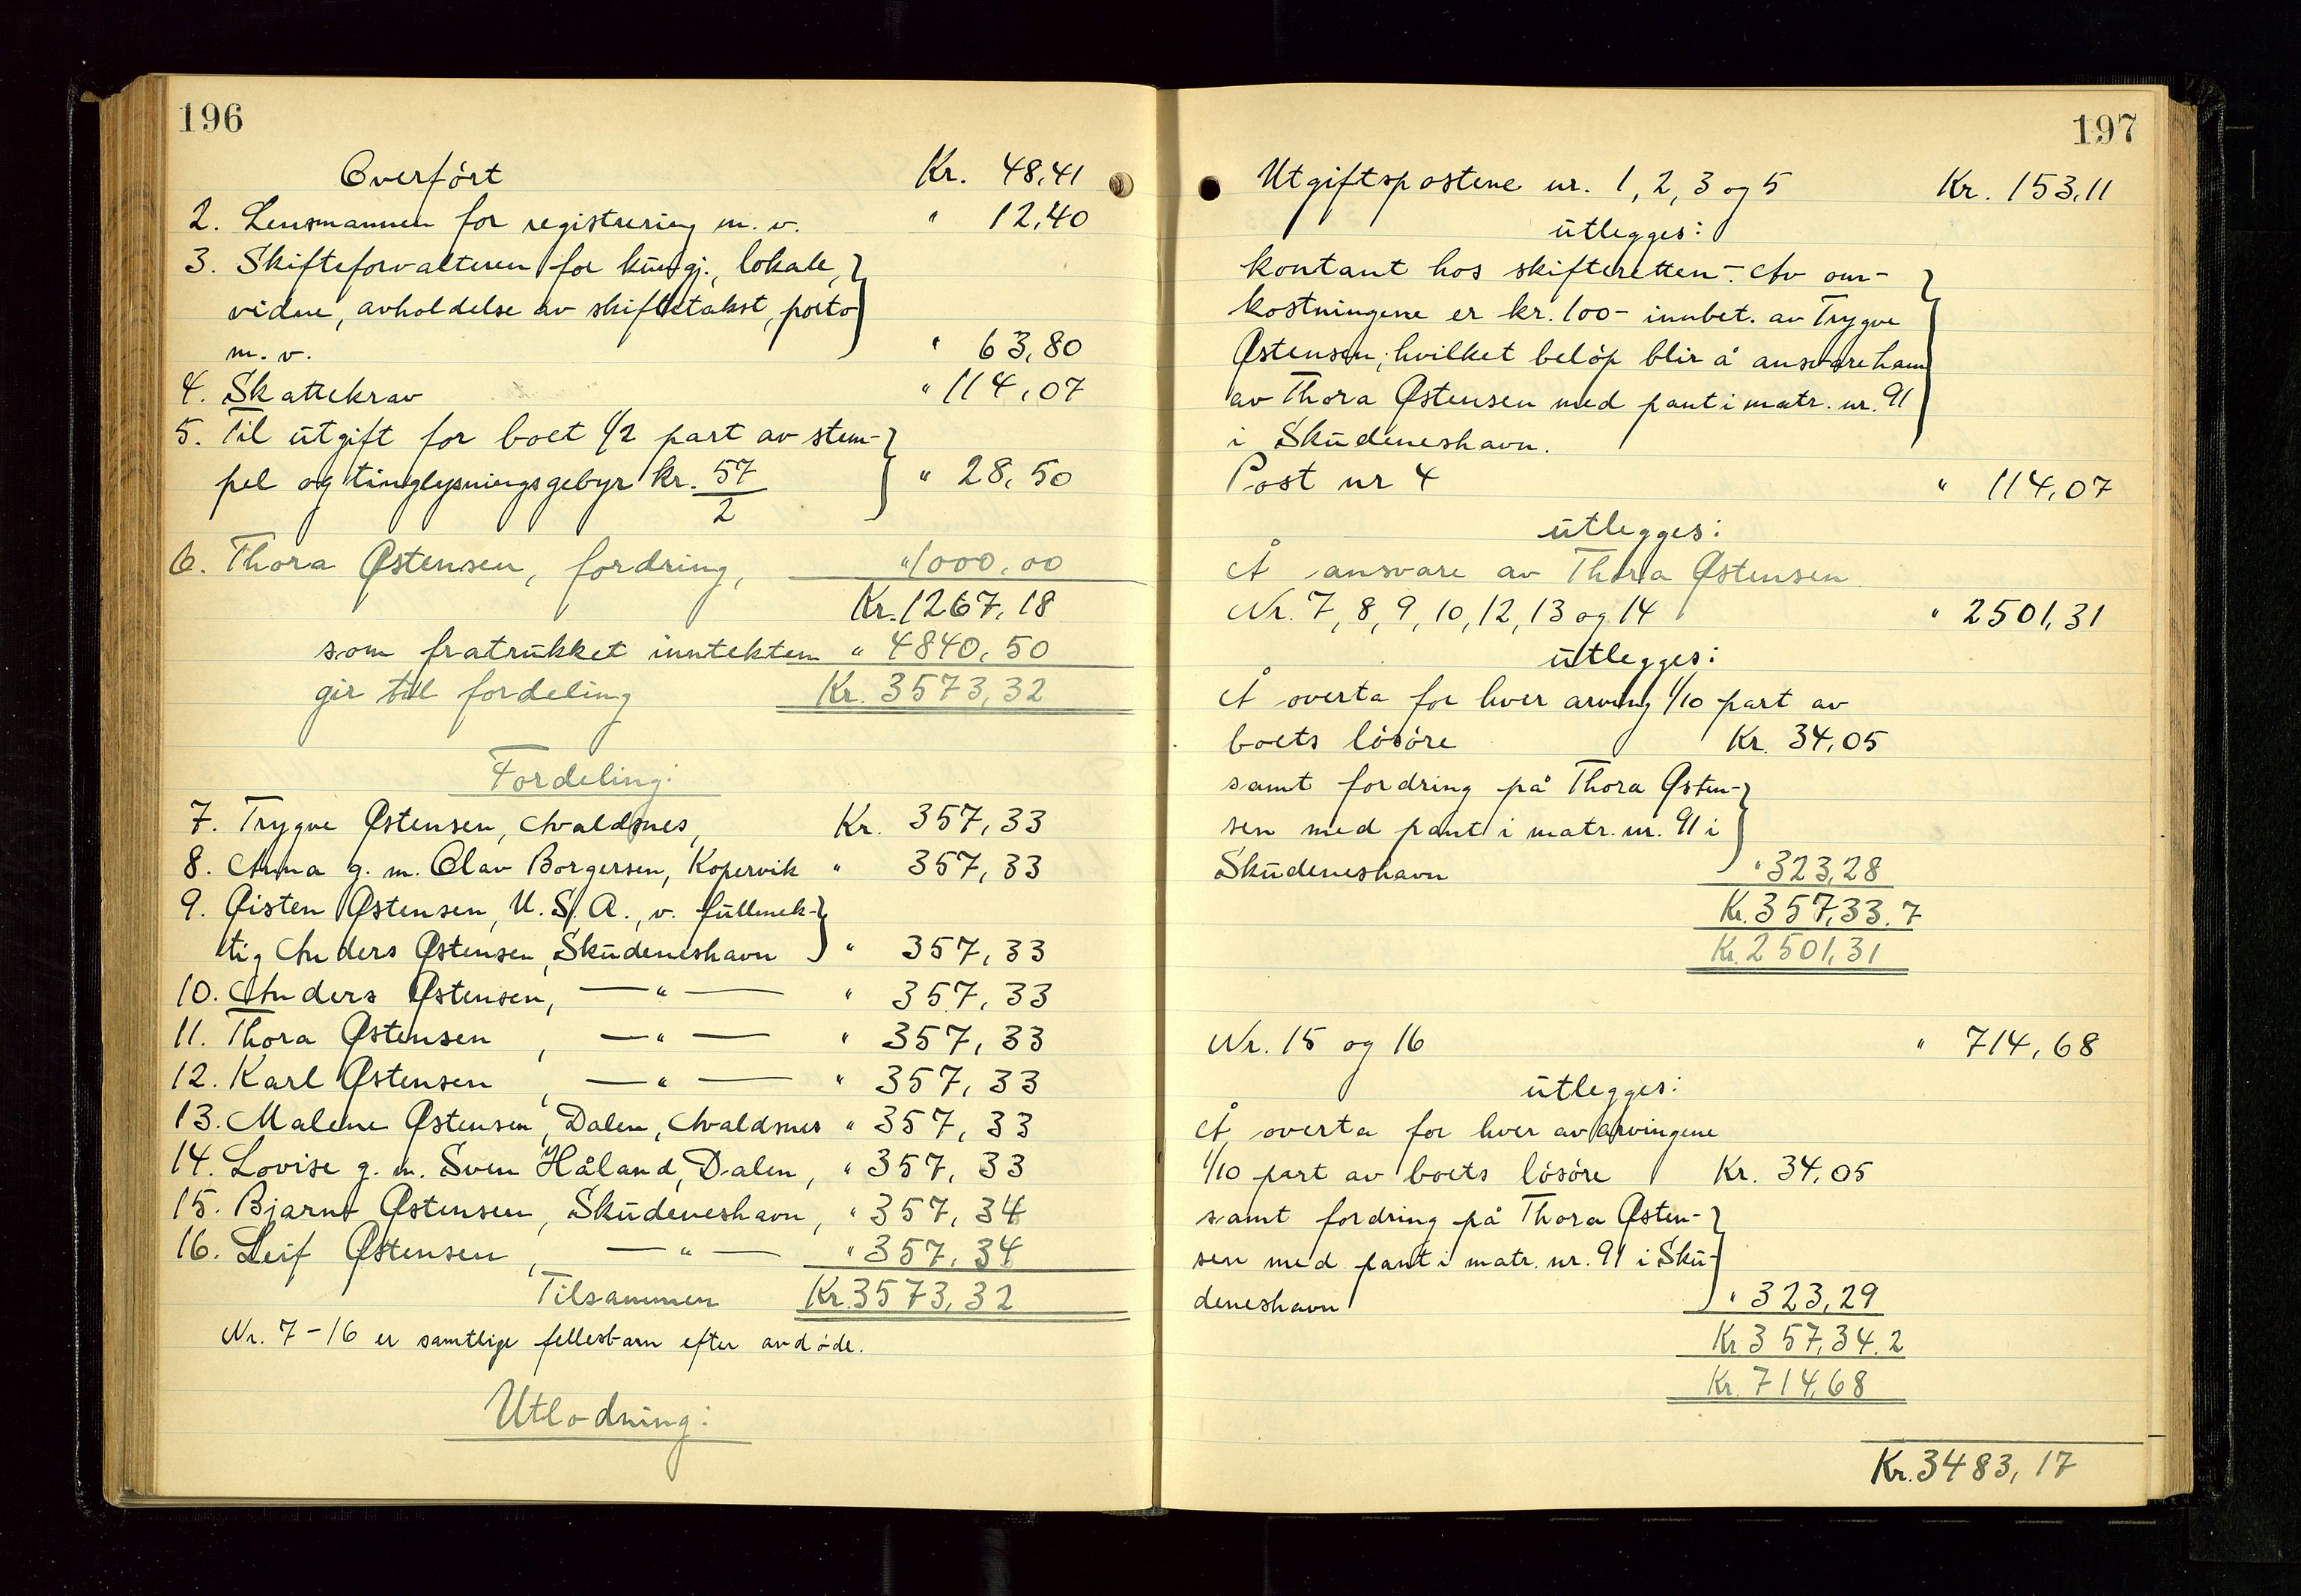 196
Overført Kr. 48,41
2. Lensmannen for registrering m. v. " 12,40
3. Skifteforvalteren for kungj., lokale,
vidne, avholdelse av skiftetakst, porto
m. v. " 63,80
4. Skattekrav " 114,07
5. Til utgift for boet 1/2 part av stem-
pel og tinglysningsgebyr kr. 57/2 " 28,50
6. Thora Østensen, fordring, " 1000,00
Kr. 1267,18
som fratrukket inntekten " 4840,50
gir till fordeling Kr. 3573,32
Fordeling:
7. Trygve Østensen, Avaldsnes, Kr. 357,33
8. Anna g. m. Olav Borgersen, Kopervik " 357,33
9. Øisten Østensen, U.S.A., v. fullmek-
tig Anders Østensen, Skudeneshavn " 357,33
10. Anders Østensen, — " — " 357,33
11. Thora Østensen, — " — " 357,33
12. Karl Østensen, — " — " 357,33
13. Malene Østensen, Dalen, Avaldsnes " 357,33
14. Lovise g. m. Sven Håland, Dalen, " 357,33
15. Bjarne Østensen, Skudeneshavn, " 357,34
16. Leif Østensen, — " — " 357,34
Tilsammen Kr. 3573,32
Nr. 7-16 er samtlige fellesbarn efter avdøde.
Utlodning:
197
Utgiftspostene nr. 1, 2, 3 og 5 Kr. 153,11
utlegges:
kontant hos skifteretten - Av om-
kostningene er kr. 100- innbet. av Trygve
Østensen, hvilket beløp blir å ansvare ham
av Thora Østensen med pant i matr. nr. 91
i Skudeneshavn.
Post nr 4 " 114,07
utlegges:
Å ansvare av Thora Østensen
Nr. 7, 8, 9, 10, 12, 13 og 14 " 2501,31
utlegges:
Å overta for hver arving 1/10 part av
boets løsøre Kr. 34,05
samt fordring på Thora Østen-
sen med pant i matr. nr. 91 i
Skudeneshavn " 323,28
Kr. 357,33. 7
Kr. 2501,31
Nr. 15 og 16 " 714,68
utlegges:
Å overta for hver av arvingene
1/10 part av boets løsøre Kr. 34,05
samt fordring på Thora Østen-
sen med pant i matr. nr. 91 i Sku-
deneshavn " 323,29
Kr 357,34. 2
Kr. 714,68
Kr. 3483,17